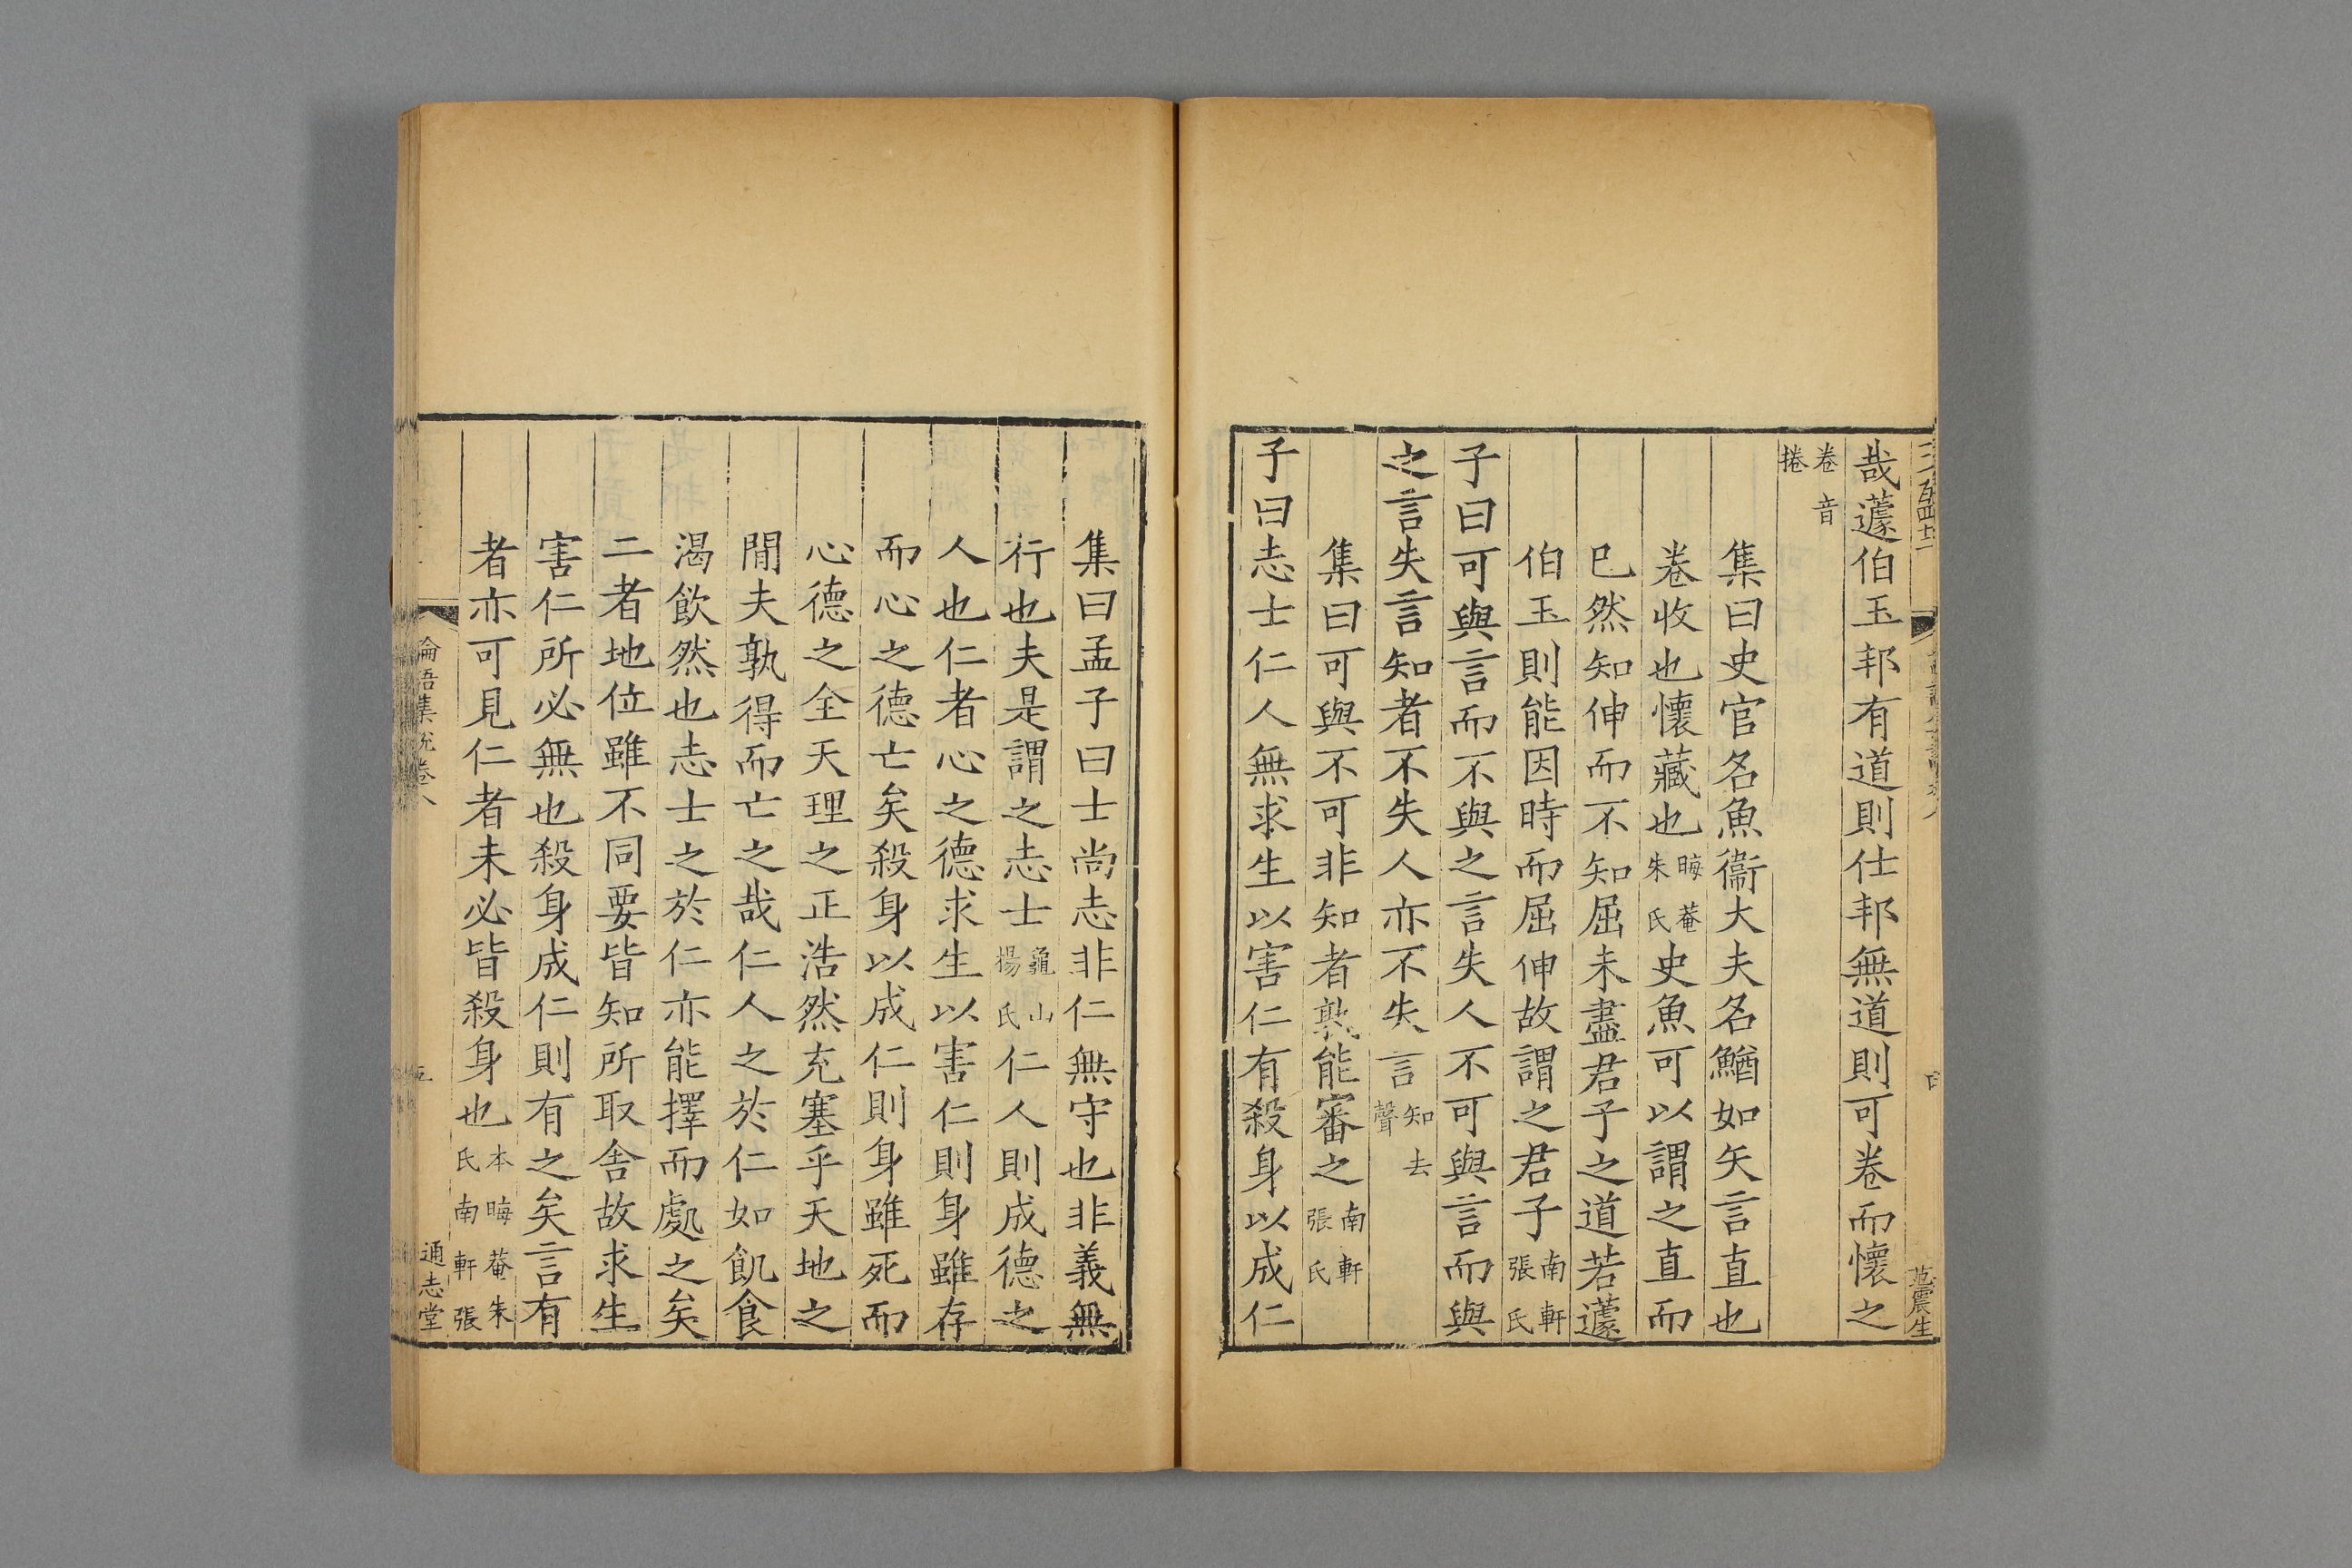 哉蘧伯玉邦有道則仕邦無道則可卷而懷之
卷音
捲
集曰史官名魚衞大夫名鰌如矢言直也
卷收也懷藏也晦菴朱氏史魚可以謂之直而
已然知伸而不知屈未盡君子之道若蘧
伯玉則能因時而屈伸故謂之君子南軒張氏
子曰可與言而不與之言失人不可與言而與
之言失言知者不失人亦不失言知去聲
集曰可與不可非知者孰能審之南軒張氏
子曰志士仁人無求生以害仁有殺身以成仁
集曰孟子曰士尚志非仁無守也非義無
行也夫是謂之志士龜山楊氏仁人則成德之
人也仁者心之德求生以害仁則身雖存
而心之德亡矣殺身以成仁則身雖死而
心德之全天理之正浩然充塞乎天地之
閒夫孰得而亡之哉仁人之於仁如飢食
渴飲然也志士之於仁亦能擇而處之矣
二者地位雖不同要皆知所取舍故求生
害仁所必無也殺身成仁則有之矣言有
者亦可見仁者未必皆殺身也本晦菴朱氏南軒張
論語集說卷八
五
通志堂
范震生